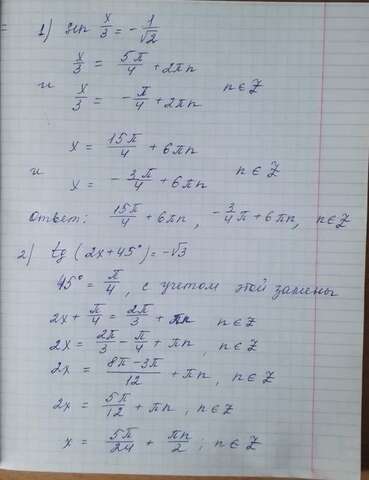 1) sin x/3 = -1/√2
x/3 = 5π/4 + 2πn
и x/3 = -π/4 + 2πn n∈Z
x = 15π/4 + 6πn
и x = -3π/4 + 6πn n∈Z
ответ: 15π/4 + 6πn, -3/4 π + 6πn, n∈Z
2) tg (2x+45°) = -√3
45° = π/4, с учетом этой замены
2x + π/4 = 2π/3 + πn n∈Z
2x = 2π/3 - π/4 + πn, n∈Z
2x = 8π-3π/12 + πn, n∈Z
2x = 5π/12 + πn; n∈Z
x = 5π/24 + πn/2; n∈Z